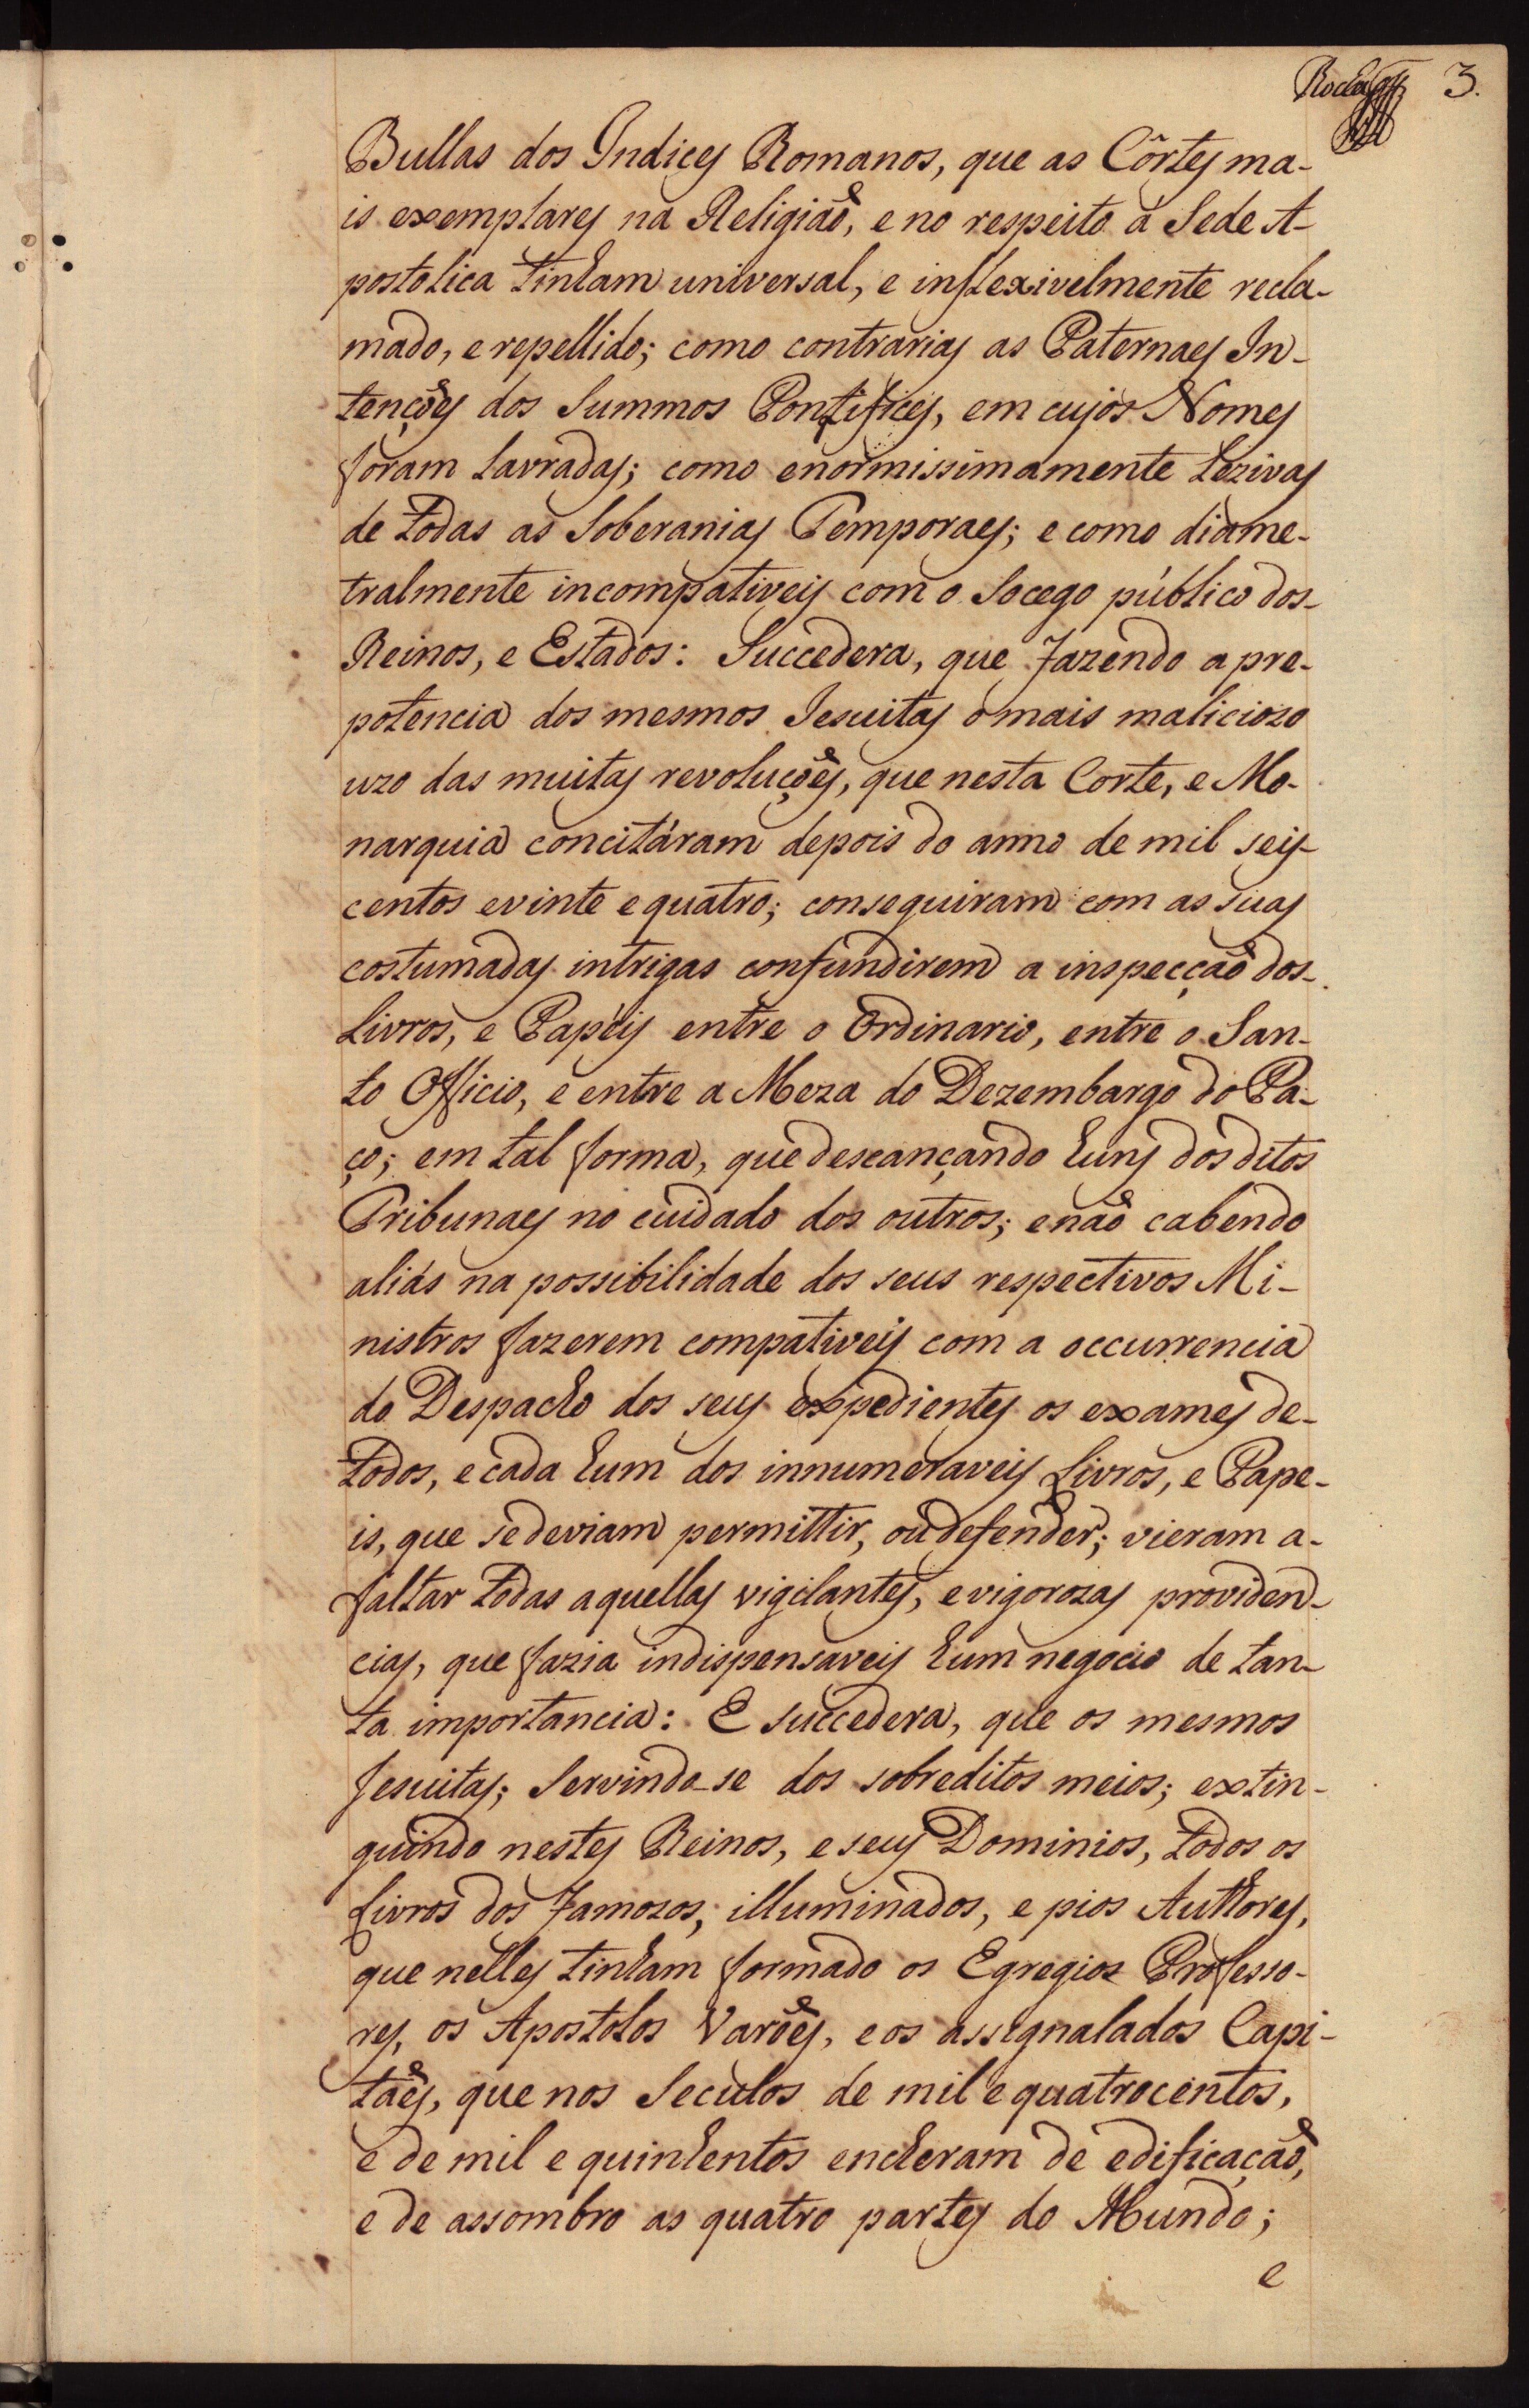 Rocha 3.
Bullas dos Indices Romanos, que as Côrtes ma-
is exemplares na Religiaõ, e no respeito á Sede A-
postolica tinham universal, e inflexivelmente recla-
mado, e repellido; como contrarias as Paternaes In-
tençoẽs dos Summos Pontifices, em cujos Nomes
foram lavradas; como enormissimamente lezivas
de todas as Soberanias Temporaes; e como diame-
tralmente incompativeis com o Socego público dos
Reinos, e Estados: Succedera, que fazendo a pre-
potencia dos mesmos Jesuitas o mais maliciozo
uzo das muitas revoluçoẽs, que nesta Corte, e Mo-
narquia concitáram depois do anno de mil seis
centos e vinte e quatro; conseguiram com as suas
costumadas intrigas confundirem a inspecçaõ dos
Livros, e Papéis entre o Ordinario, entre o San-
to Officio, e entre a Meza do Dezembargo do Pa-
ço; em tal forma, que descançando huns dos ditos
Tribunaes no cuidado dos outros; e naõ cabendo
aliás na possibilidade dos seus respectivos Mi-
nistros fazerem compativeis com a occurrencia
do Despacho dos seus expedientes os exames de
todos, e cada hum dos innumeraveis Livros, e Pape-
is, que se deviam permittir, ou defender; vieram a
faltar todas aquellas vigilantes, e vigorozas providen-
cias, que fazia indispensaveis hum negocio de tan-
ta importancia: E succedera, que os mesmos
Jesuitas; Servindo-se dos sobreditos meios; extin-
guindo nestes Reinos, e seus Dominios, todos os
Livros dos famozos, illuminados, e pios Authores,
que nelles tinham formado os Egregios Professo-
res, os Apostolos Varoẽs, e os assignalados Capi-
taẽs, que nos Seculos de mil e quatrocentos,
e de mil e quinhentos encheram de edificaçaõ,
e de assombro as quatro partes do Mundo;
e